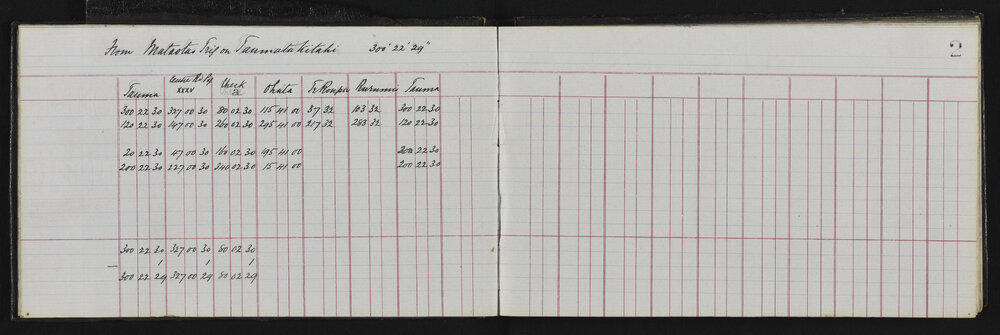 From Mataotao Trig on Taumatakitahi 300° 22' 29"
2
Tauma Centre Rd Peg XXXV Check IX Ohuta Te Ronpu Purunui Tauma
300 22 30 327 00 30 80 02 30 115 41 00 37 32 103 32 300 22 30
120 22 30 147 00 30 260 02 30 295 41 00 217 32 283 32 120 22 30
20 22 30 47 00 30 160 02 30 195 41 00 200 22 30
200 22 30 227 00 30 340 02 30 15 41 00 200 22 30
300 22 30 327 00 30 80 02 30
– 1 1 1
300 22 29 327 00 29 80 02 29